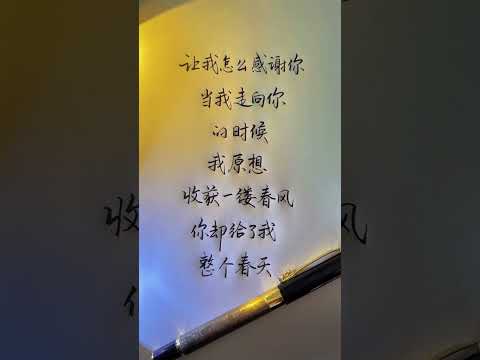 让我怎么感谢你
当我走向你
的时候
我原想
收获一缕春风
你却给了我
整个春天